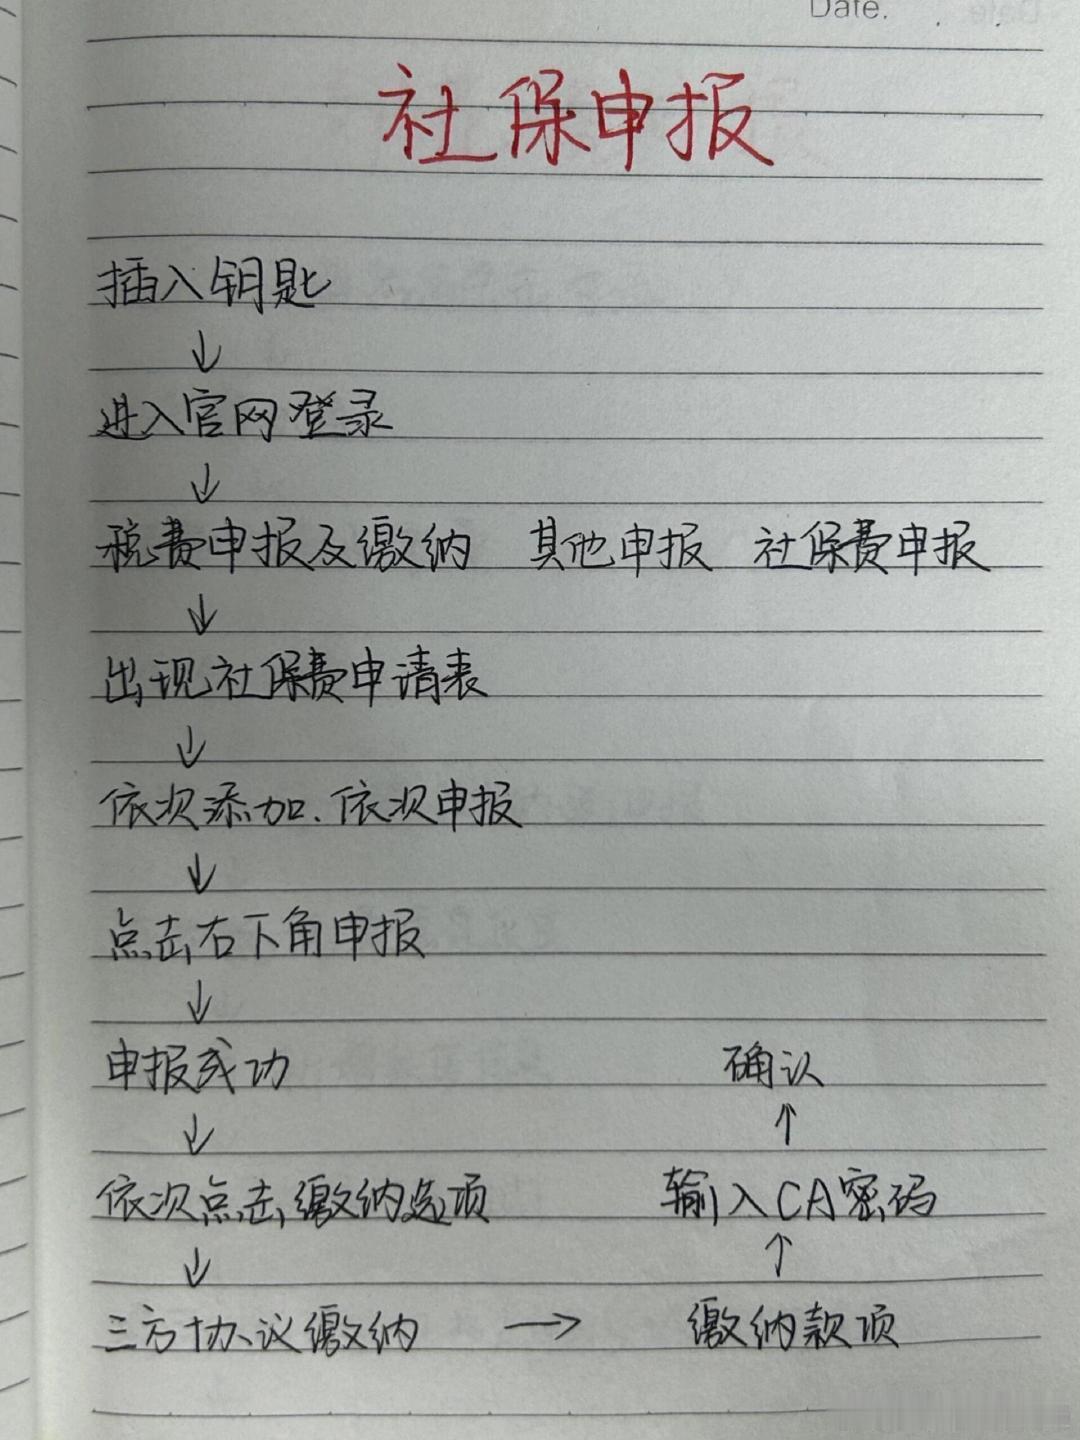 Date.
社保申报
插入钥匙
↓
进入官网登录
↓
税费申报及缴纳 其他申报 社保费申报
↓
出现社保费申请表
↓
依次添加.依次申报
↓
点击右下角申报
↓
申报成功 确认
↓ ↑
依次点击缴纳选项 输入CA密码
↓ ↑
三方协议缴纳 → 缴纳款项